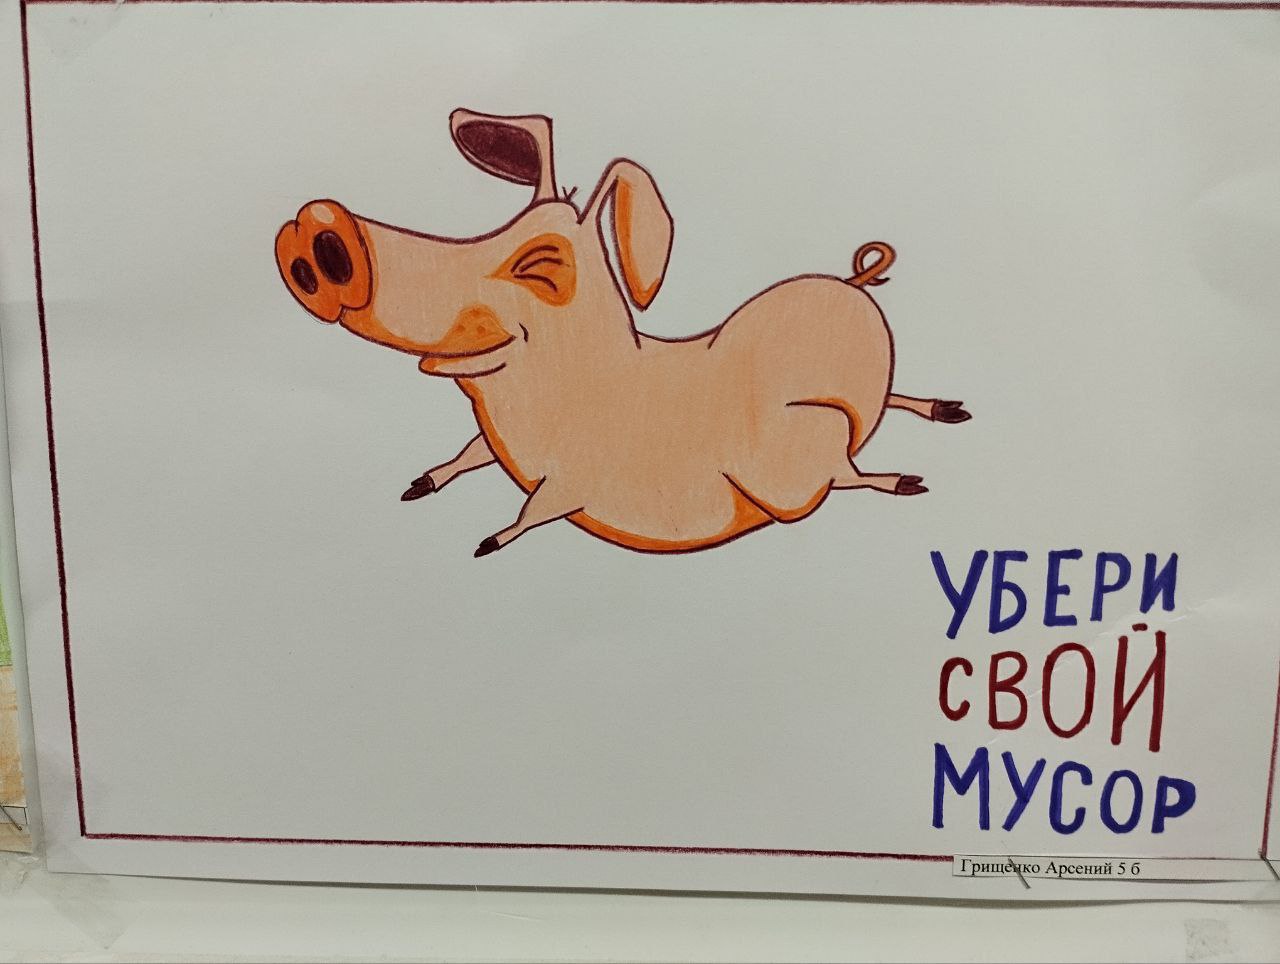 УБЕРИ
СВОЙ
МУСОР
Грищенко Арсений 5 б